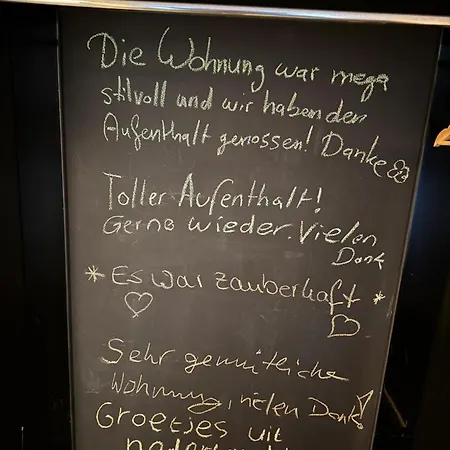 Die Wohnung war mega
stilvoll und wir haben den
Aufenthalt genossen! Danke
Toller Aufenthalt!
Gerne wieder. Vielen
Dank
* Es war zauberhaft *
Sehr gemütliche
Wohnung, vielen Dank!
Groetjes uit